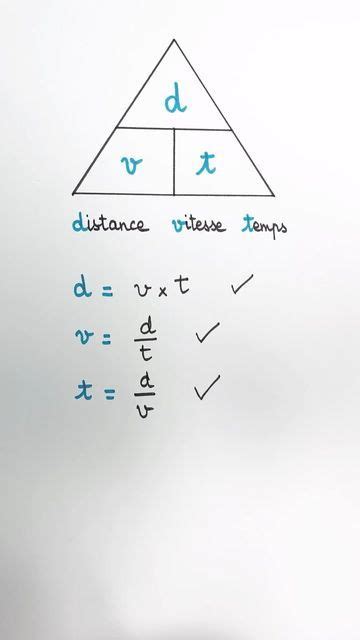 d
v t
distance vitesse temps
d = v × t ✓
v = d/t ✓
t = d/v ✓